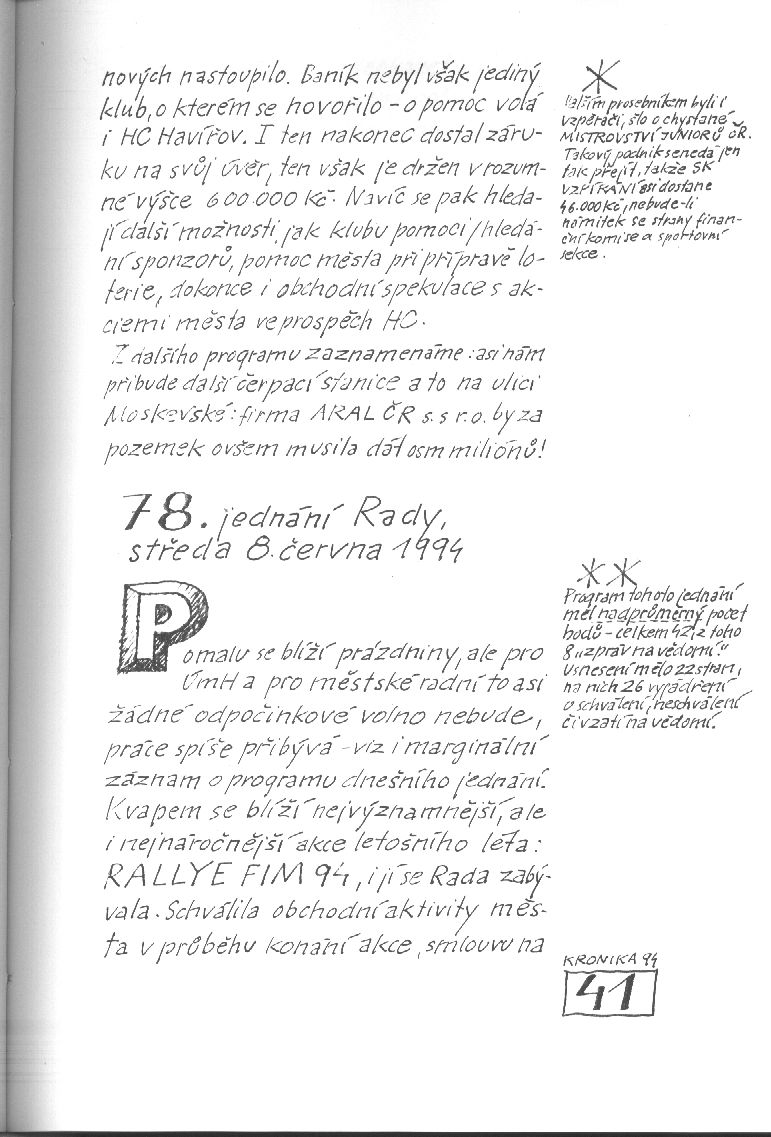 nových nastoupilo. Baník nebyl však jediný
klub, o kterém se hovořilo - o pomoc volá
i HC Havířov. I ten nakonec dostal záru-
ku na svůj úvěr, ten však je držen v rozum-
né výšce 600.000 Kč. Navíc se pak hleda-
jí další možnosti, jak klubu pomoci /hledá-
ní sponzorů, pomoc města při přípravě lo-
terie, dokonce i obchodní spekulace s ak-
ciemi města ve prospěch HC.
Z dalšího programu zaznamenáme: asi nám
přibude další čerpací stanice a to na ulici
Moskevské: firma ARAL ČR s.s r.o. by za
pozemek ovšem musila dát osm miliónů!
*
Dalším prosebníkem byli i
vzpěrači, šlo o chystané
MISTROVSTVÍ JUNIORŮ ČR.
Takový podnik se nedá jen
tak přejít, takže SK
VZPÍRÁNÍ asi dostane
46.000 Kč, nebude-li
námitek se strany finan-
ční komise a sportovní
sekce.
78. jednání Rady,
středa 8. června 1994
Pomalu se blíží prázdniny, ale pro
ÚmH a pro městské radní to asi
žádné odpočinkové volno nebude,
práce spíše přibývá - viz i marginální
záznam o programu dnešního jednání.
Kvapem se blíží nejvýznamnější, ale
i nejnáročnější akce letošního léta:
RALLYE FIM 94, i jí se Rada zabý-
vala. Schválila obchodní aktivity měs-
ta v průběhu konání akce, smlouvu na
**
Program tohoto jednání
měl nadprůměrný počet
bodů - celkem 42, z toho
8 "zpráv na vědomí"
Usnesení mělo 22 stran,
na nich 26 vyjádření
o schválení, neschválení
či vzatí na vědomí.
KRONIKA 94
41